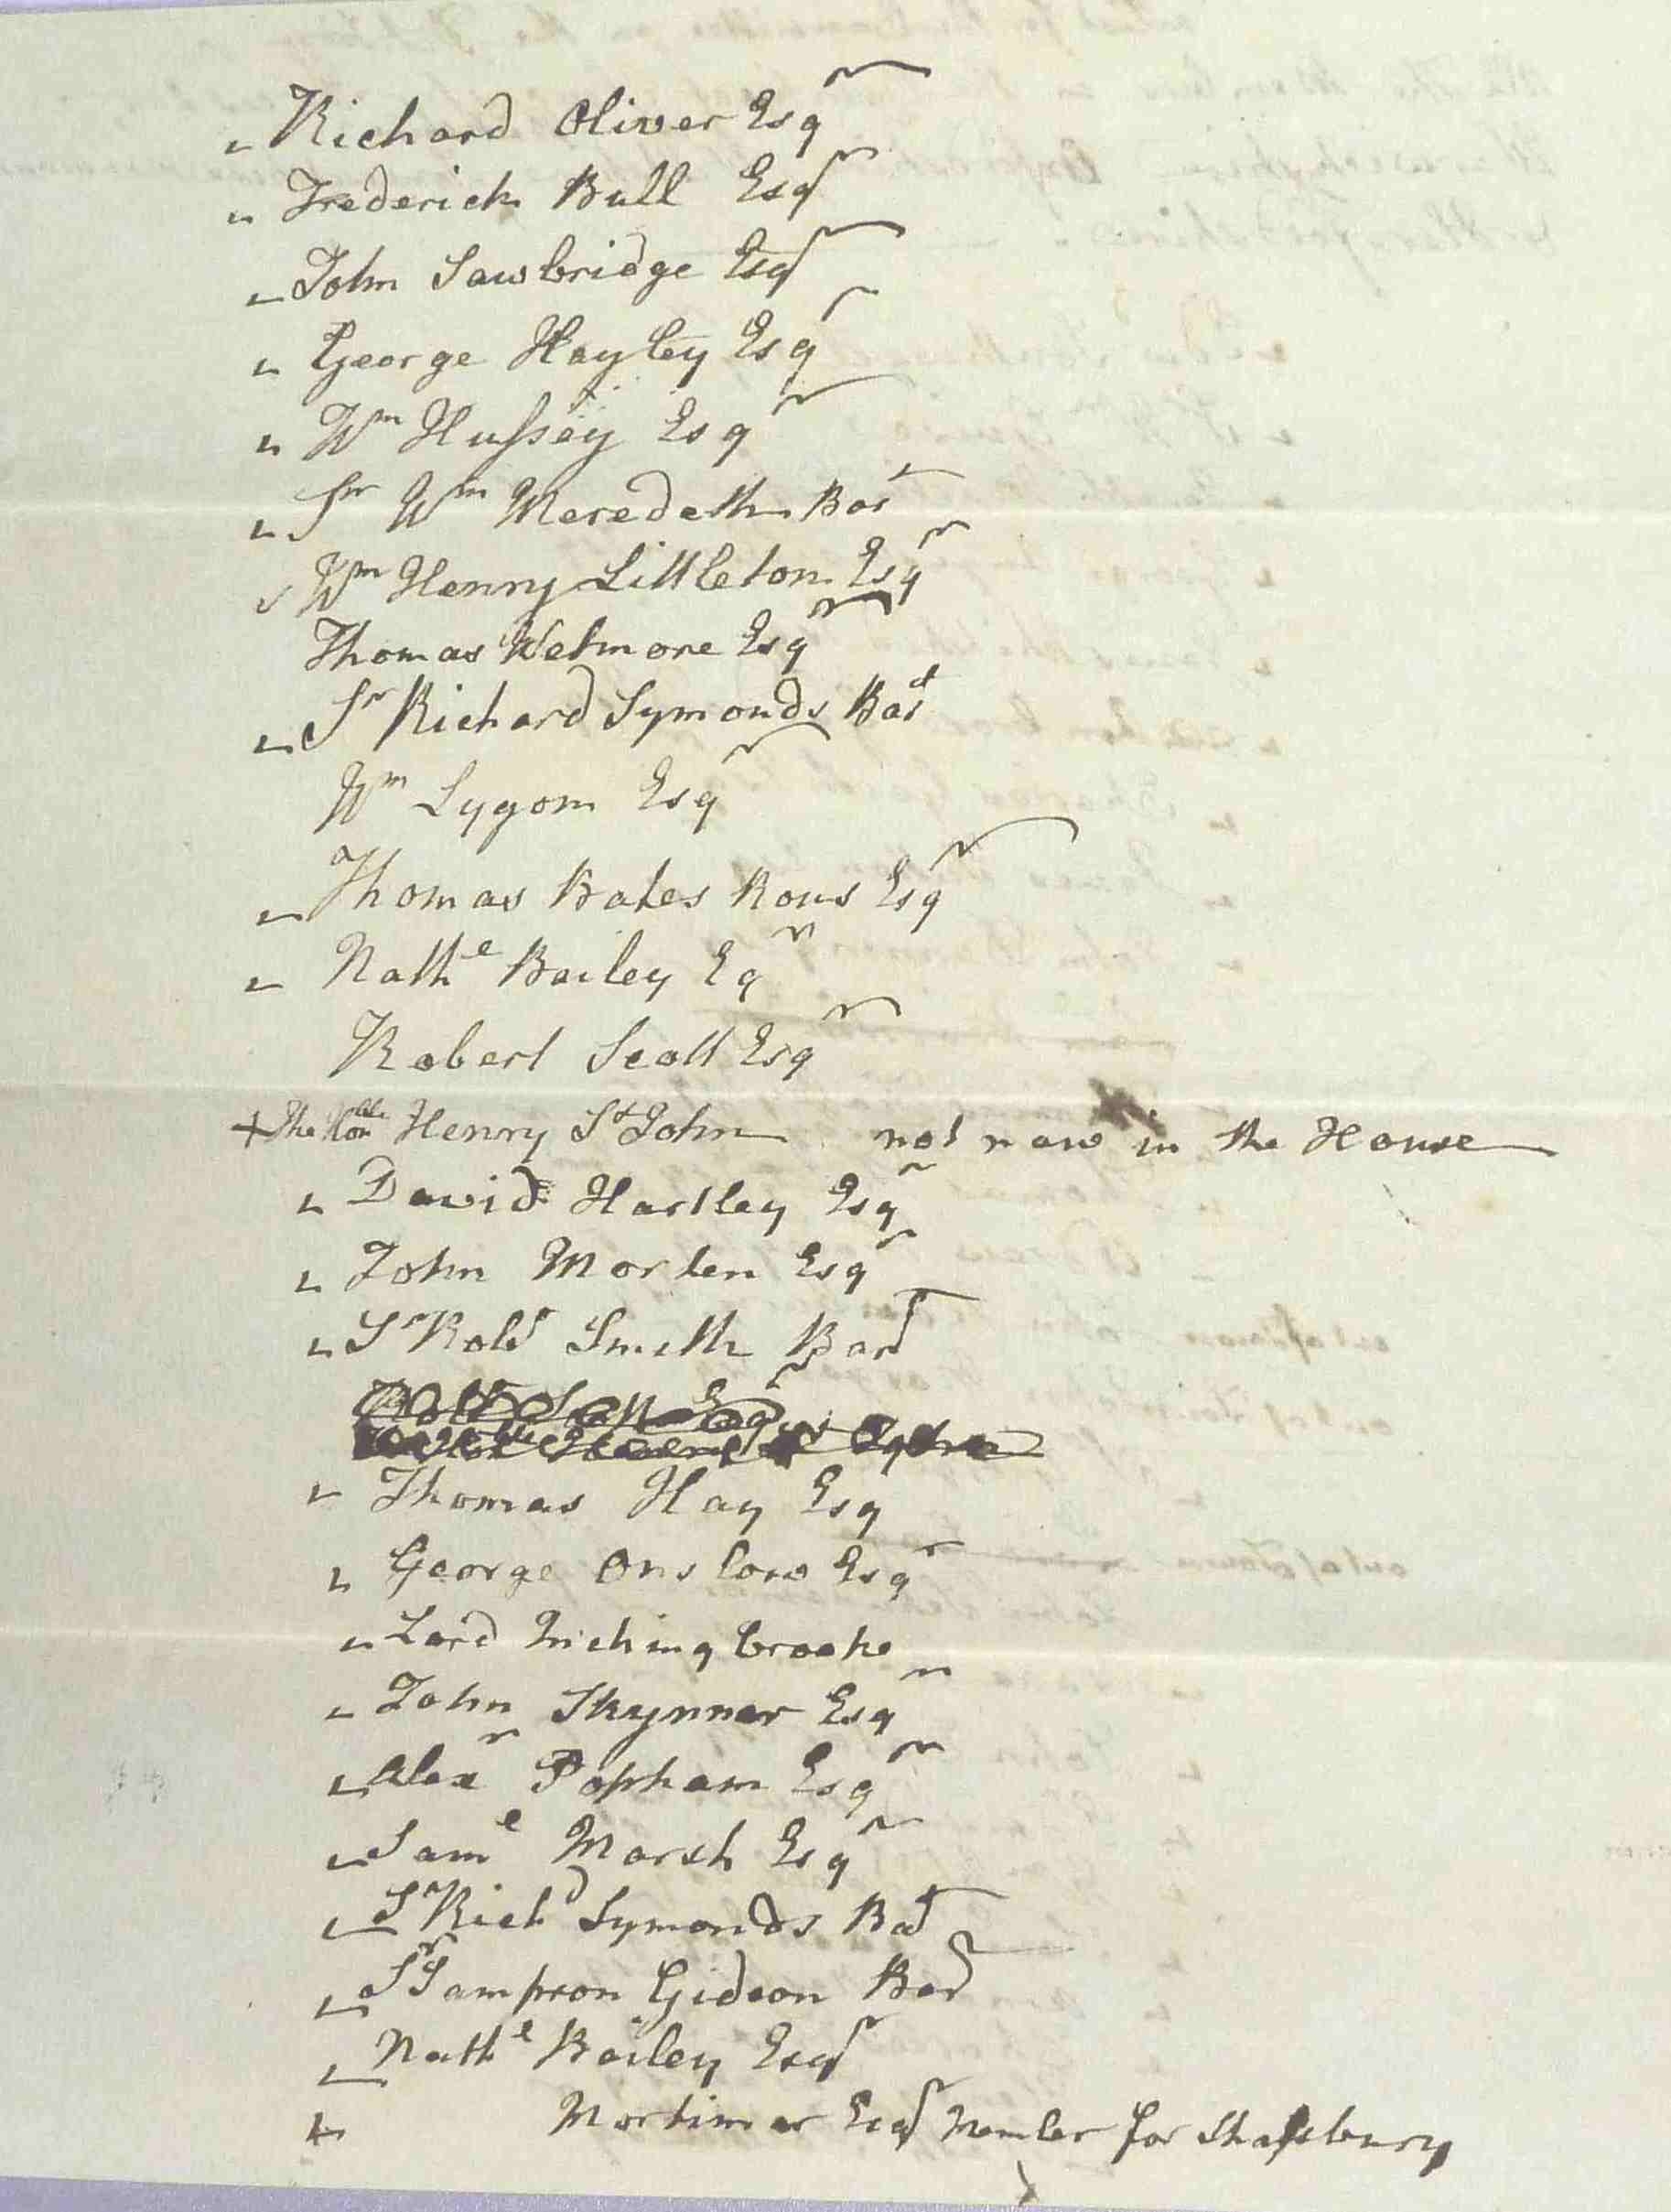 Richard Oliver Esqr
Frederick Bull Esqr
John Sawbridge Esqr
George Hayley Esqr
Wm Hussey Esqr
Sr Wm Meredeth Bart
Wm Henry Littleton Esqr
Thomas Wetmore Esqr
Sr Richard Symonds Bart
Wm Lygon Esqr
Thomas Bates Rous Esqr
Nathl Bailey Eqr
Robert Scott Esqr
+ The Honble Henry St John not now in the House
David Hartley Esqr
John Morten Esqr
Sr Robt Smith Bart
Thomas Hay Esq
George Onslow Esqr
Lord Hichingbrooke
John Skynner Esqr
Alexr Popham Esqr
Saml Marsh Esqr
Sr Richd Symonds Bat
Sr Sampson Gideon Bart
Nathl Bailey Esqr
Mortimer Esqr Member for Shafsbury